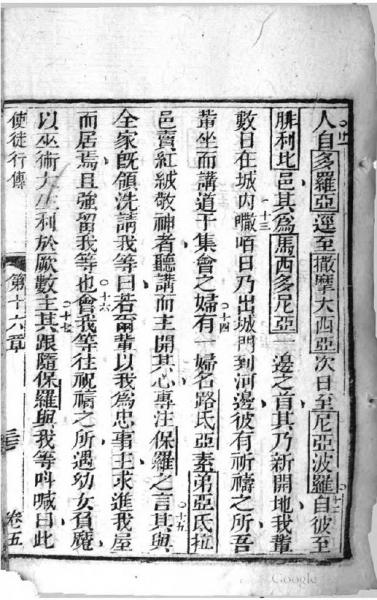 人自多羅亞逕至撒摩大西亞次日至尼亞波羅自彼至
腓利比邑其為馬西多尼亞一邊之首其乃新開地我輩
數日在城內嗽咟日乃出城門到河邊彼有祈禱之所吾
輩坐而講道于集會之婦有一婦名路氏亞素弟亞氏拉
邑賣紅絨敬神者聽講而主開其心專注保羅之言其與
全家既領洗請我等曰若爾輩以我為忠事主求進我屋
而居焉且強留我等也會我等往祝禱之所遇幼女負魔
以巫術大生利於厥數主其跟隨保羅與我等呌喊曰此
使徒行傳 第十六章 卷五
十二
十三
十四
十五
十六
十七
Google